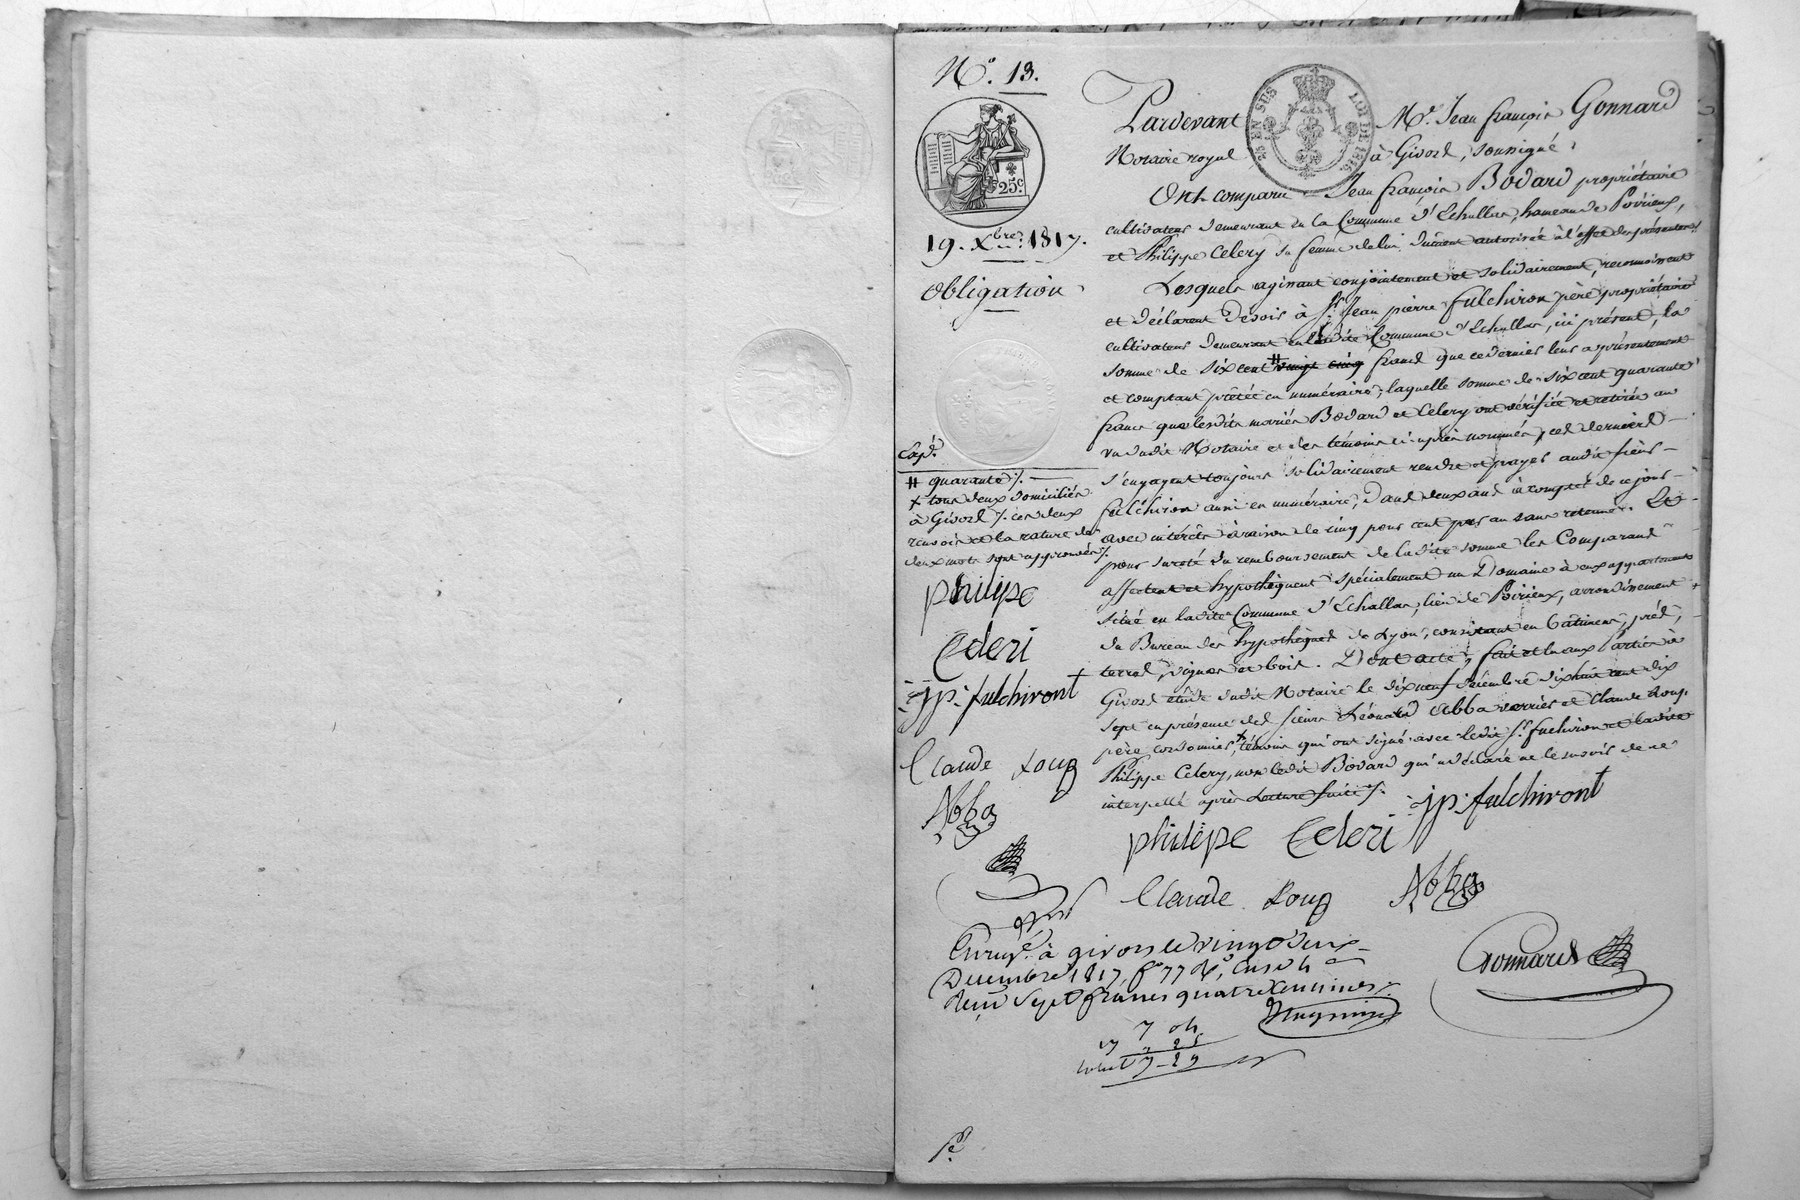 N.° 13.
25 EN SUS
LOI DE 1816
25c
19. Xbre 1817.
Obligation
Pardevant Me. Jean françois Gonnard
Notaire royal à Givord, soussigné.
Ont comparu Jean françois Bodard propriétaire
cultivateur demeurant en la Commune d'Echallas, hameau de Poirieux,
et Philippe Celery sa femme de lui dûment autorisée à l'effet des présentes
Lesquels agissant conjointement et solidairement, reconnoissent
et déclarent devoir à Sr. Jean pierre fulchiron père propriétaire
cultivateur demeurant en ladite Commune d'Echallas, ici présent, la
somme de six cent # vingt cinq francs que ce dernier leur a présentement
et comptant prêtée en numéraire; laquelle somme de six cent quarante
francs que lesdits mariés Bodard et Celery ont vérifiée et retirée au
vu dudit Notaire et des témoins ci-après nommés, ces derniers
s'engagent toujours solidairement rendre et payer audit sieur
fulchiron aussi en numéraire, dans deux ans à compter de ce jour
avec intérêts à raison de cinq pour cent par an sans retenue. Et
pour sureté du remboursement de ladite somme les Comparans
affectent et hypothèquent spécialement un Domaine à eux appartenant
situé en ladite Commune d'Echallas, lieu de Poirieux, arrondissement
du Bureau des hypothèques de Lyon, consistant en bâtimens, prés,
terres, vignes et bois. Dont acte, fait et lu aux Parties à
Givord étude dudit Notaire le dix neuf décembre dix huit cent dix
sept en présence des sieurs Léonard Abba verrier et Claude Loup
père cordonnier, + témoins qui ont signé avec ledit Sr. fulchiron et ladite
Philippe Celery, non ledit Bodard qui a déclaré ne le savoir de ce
interpellé après Lecture faite /.
Expé.
# quarante /.
+ tous deux domiciliés
à Givord /. ces deux
renvois et la rature de
deux mots sont approuvés /.
philipe
Celeri
jp: fulchiront
Claude Loup
Abba
philipe Celeri jp: fulchiront
Claude Loup Abba
Gonnard
Enregé. à givors le vingt deux
Decembre 1817 fo. 77 Ro. Case 4
Reçu Sept francs quatre centimes /.
7 04